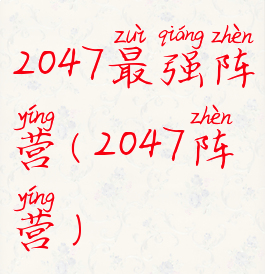 zuì qiáng zhèn
2047最强阵
yíng zhèn
营（2047阵
yíng
营）